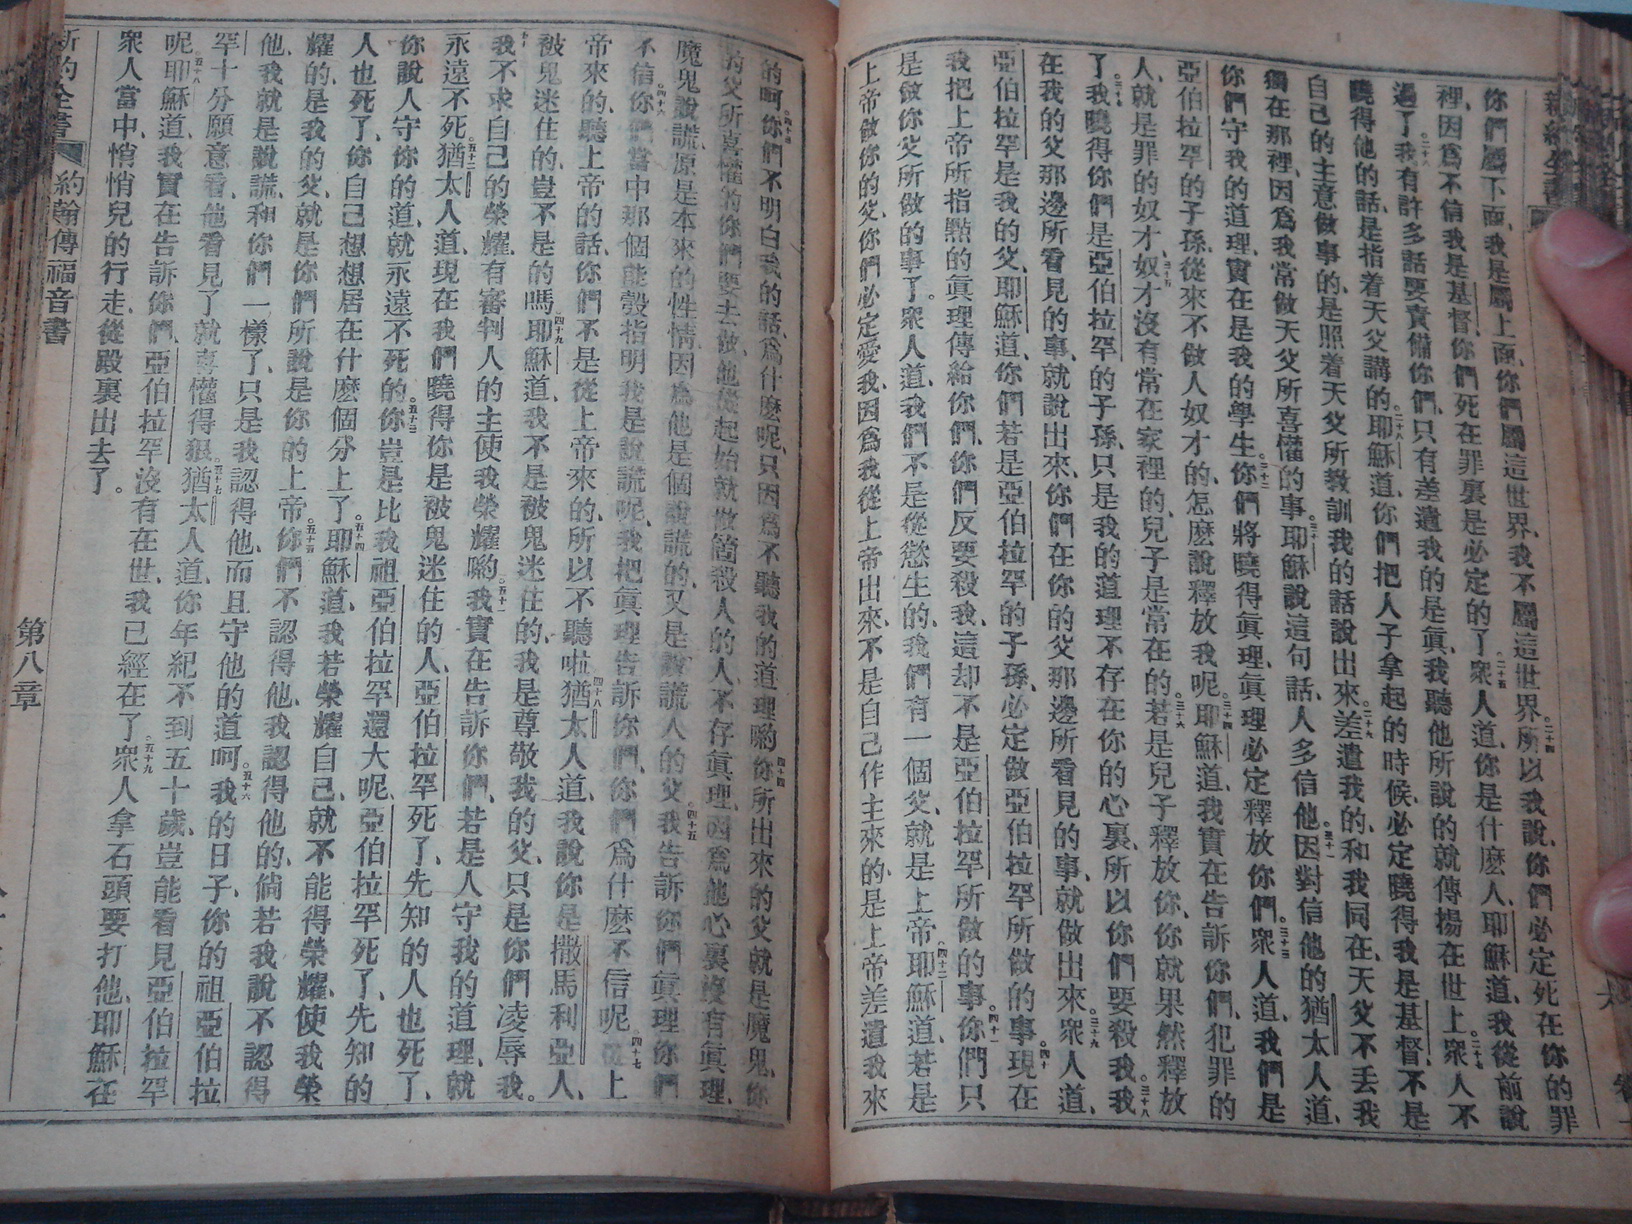 你們屬下面、我是屬上面、你們屬這世界、我不屬這世界。二十四所以我說、你們必定死在你的罪
裡、因爲不信我是基督、你們死在罪裏是必定的了。二十五衆人道、你是什麽人、耶穌道、我從前說
過了。二十六我有許多話要責備你們、只有差遣我的是眞、我聽他所說的就傳揚在世上。二十七衆人不
曉得他的話、是指着天父講的。二十八耶穌道、你們把人子拿起的時候、必定曉得我是基督、不是
自己的主意做事的、是照着天父所教訓我的話說出來。二十九差遣我的、和我同在、天父不丟我
獨在那裡、因爲我常做天父所喜懽的事。三十耶穌說這句話、人多信他。三十一因對信他的猶太人道、
你們守我的道理、實在是我的學生。三十二你們將曉得眞理、眞理必定釋放你們。三十三衆人道、我們是
亞伯拉罕的子孫、從來不做人奴才的、怎麽說釋放我呢。三十四耶穌道、我實在告訴你們、犯罪的
人、就是罪的奴才。三十五奴才沒有常在家裡的、兒子是常在的。三十六若是兒子釋放你、你就果然釋放
了。三十七我曉得你們是亞伯拉罕的子孫、只是我的道理不存在你的心裏、所以你們要殺我。三十八我
在我的父那邊所看見的事、就說出來、你們在你的父那邊所看見的事、就做出來。三十九衆人道、
亞伯拉罕是我的父、耶穌道、你們若是亞伯拉罕的子孫、必定做亞伯拉罕所做的事。四十現在
我把上帝所指點的眞理傳給你們、你們反要殺我、這却不是亞伯拉罕所做的事。四十一你們只
是做你父所做的事了。衆人道、我們不是從慾生的、我們有一個父、就是上帝。四十二耶穌道、若是
上帝做你的父、你們必定愛我、因爲我從上帝出來、不是自己作主來的、是上帝差遣我來
的呵。四十三你們不明白我的話、爲什麽呢、只因爲不聽我的道理喲。四十四你所出來的父就是魔鬼、你
的父所喜懽的、你們要去做、他從起始就做箇殺人的人、不存眞理、因爲他心裏沒有眞理、
魔鬼說謊、原是本來的性情、因爲他是個說謊的、又是說謊人的父。四十五我告訴你們眞理、你們
不信。四十六你們當中那個能彀指明我是說謊呢、我把眞理告訴你們、你們爲什麽不信呢。四十七從上
帝來的、聽上帝的話、你們不是從上帝來的、所以不聽啦。四十八猶太人道、我說你是撒馬利亞人、
被鬼迷住的、豈不是的嗎。四十九耶穌道、我不是被鬼迷住的、我是尊敬我的父、只是你們凌辱我。
五十我不求自己的榮耀、有審判人的主使我榮耀喲。五十一我實在告訴你們、若是人守我的道理、就
永遠不死。五十二猶太人道、現在我們曉得你是被鬼迷住的人、亞伯拉罕死了、先知的人也死了、
你說人守你的道、就永遠不死的。五十三你豈是比我祖亞伯拉罕還大呢、亞伯拉罕死了、先知的
人也死了、你自己想想居在什麽個分上了。五十四耶穌道、我若榮耀自己、就不能得榮耀、使我榮
耀的是我的父、就是你們所說是你的上帝。五十五你們不認得他、我認得他的、倘若我說不認得
他、我就是說謊、和你們一樣了、只是我認得他、而且守他的道呵。五十六我的日子、你的祖亞伯拉
罕十分願意看、他看見了就喜懽得狠。五十七猶太人道、你年紀不到五十歲、豈能看見亞伯拉罕
呢。五十八耶穌道、我實在告訴你們、亞伯拉罕沒有在世、我已經在了。五十九衆人拿石頭要打他、耶穌在
衆人當中、悄悄兒的行走、從殿裏出去了。
新約全書 約翰傳福音書 第八章